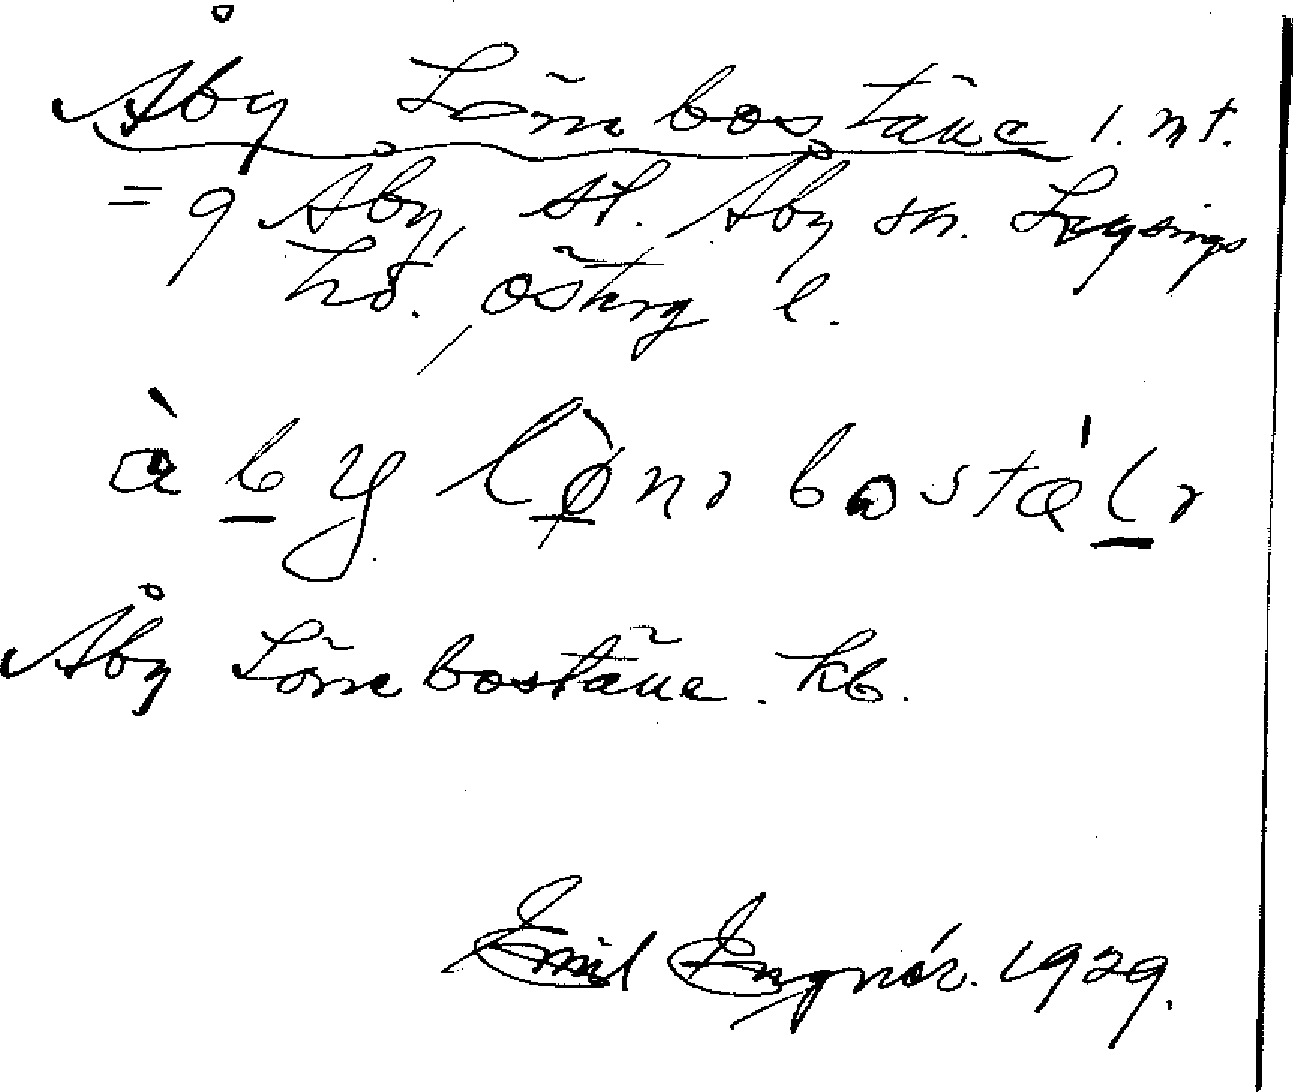 Åby Lönneboställe 1. mt.
= 9 Åby, st. Åby sn. Lysings
hd. Östrg l.
àby lǿnı bostǽlı
Åby Lönneboställe. kb.
Emil Engnér. 1929.